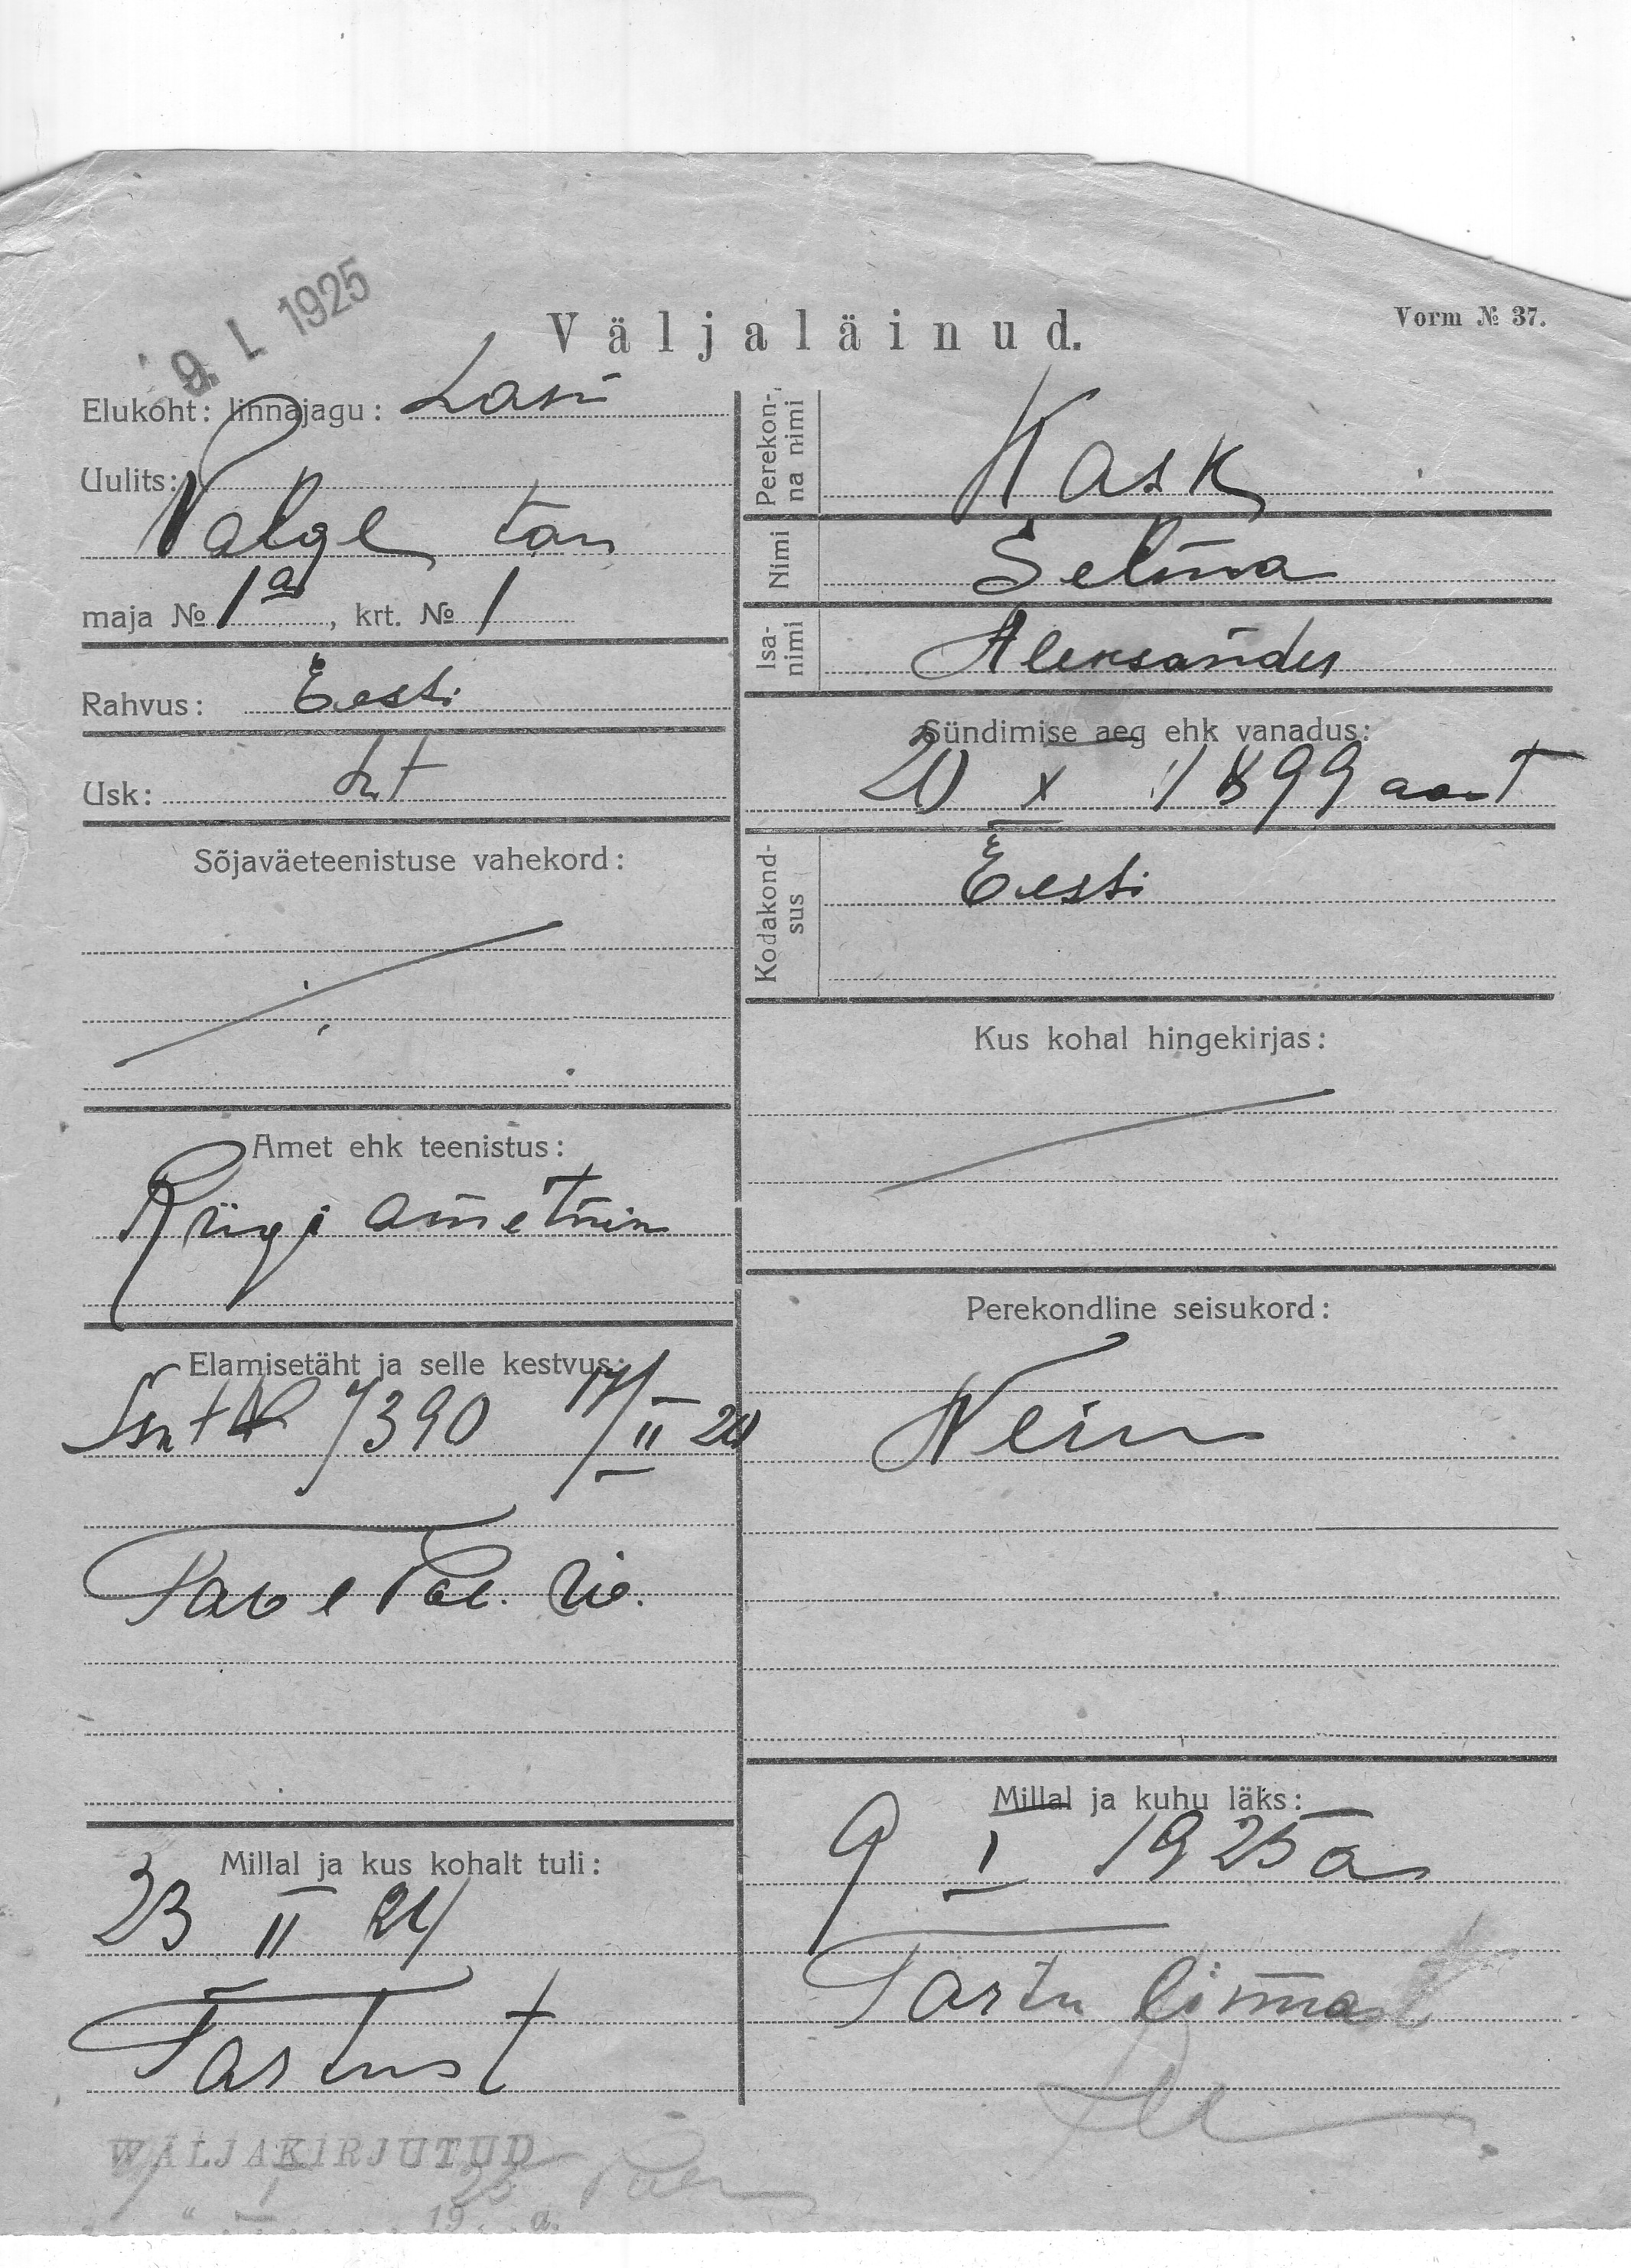 9. I. 1925
Väljaläinud.
Vorm № 37.
Elukoht: linnajagu:
Uulits:
Valge tän
maja № 1a, krt. № 1
Rahvus: Eesti
Usk: Lut
Sõjaväeteenistuse vahekord:
Amet ehk teenistus:
Riigi ametnin
Elamisetäht ja selle kestvus:
7390 17/II 20
Millal ja kus kohalt tuli:
23 II 24
Tartust
WÄLJAKIRJUTUD
I 25
" 19 a.
Perekonna nimi
Kask
Nimi
Selma
Isanimi
Aleksander
Sündimise aeg ehk vanadus:
20 X 1899 aast
Kodakondsus
Eesti
Kus kohal hingekirjas:
Perekondline seisukord:
Nein
Millal ja kuhu läks:
9 I 1925 a
Tartu linnast